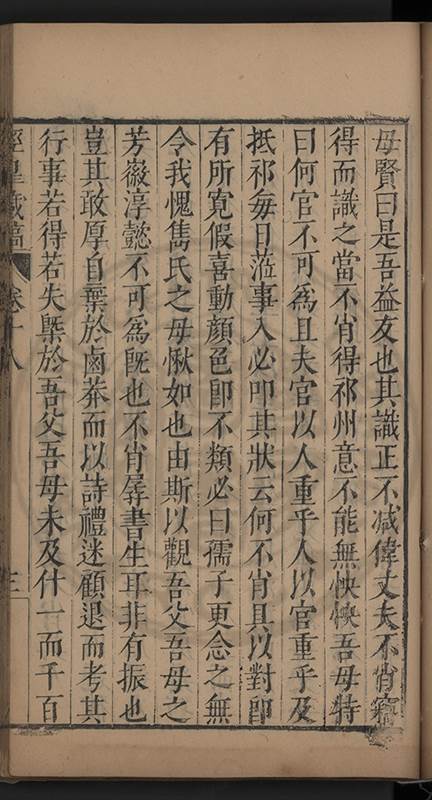 母賢曰是吾益友也其識正不减偉丈夫不肖竊
得而識之當不肖得祁州意不能無怏怏吾母特
曰何官不可爲且夫官以人重乎人以官重乎及
抵祁每日蒞事入必叩其狀云何不肖具以對卽
有所寛假喜動顔色卽不類必曰孺子更念之無
令我愧雋氏之母愀如也由斯以觀吾父吾母之
芳徽淳懿不可爲旣也不肖孱書生耳非有振也
豈其敢厚自棄於鹵莽而以詩禮迷顧退而考其
行事若得若失槩於吾父吾母未及什一而千百
皇藏稿 卷十八 三